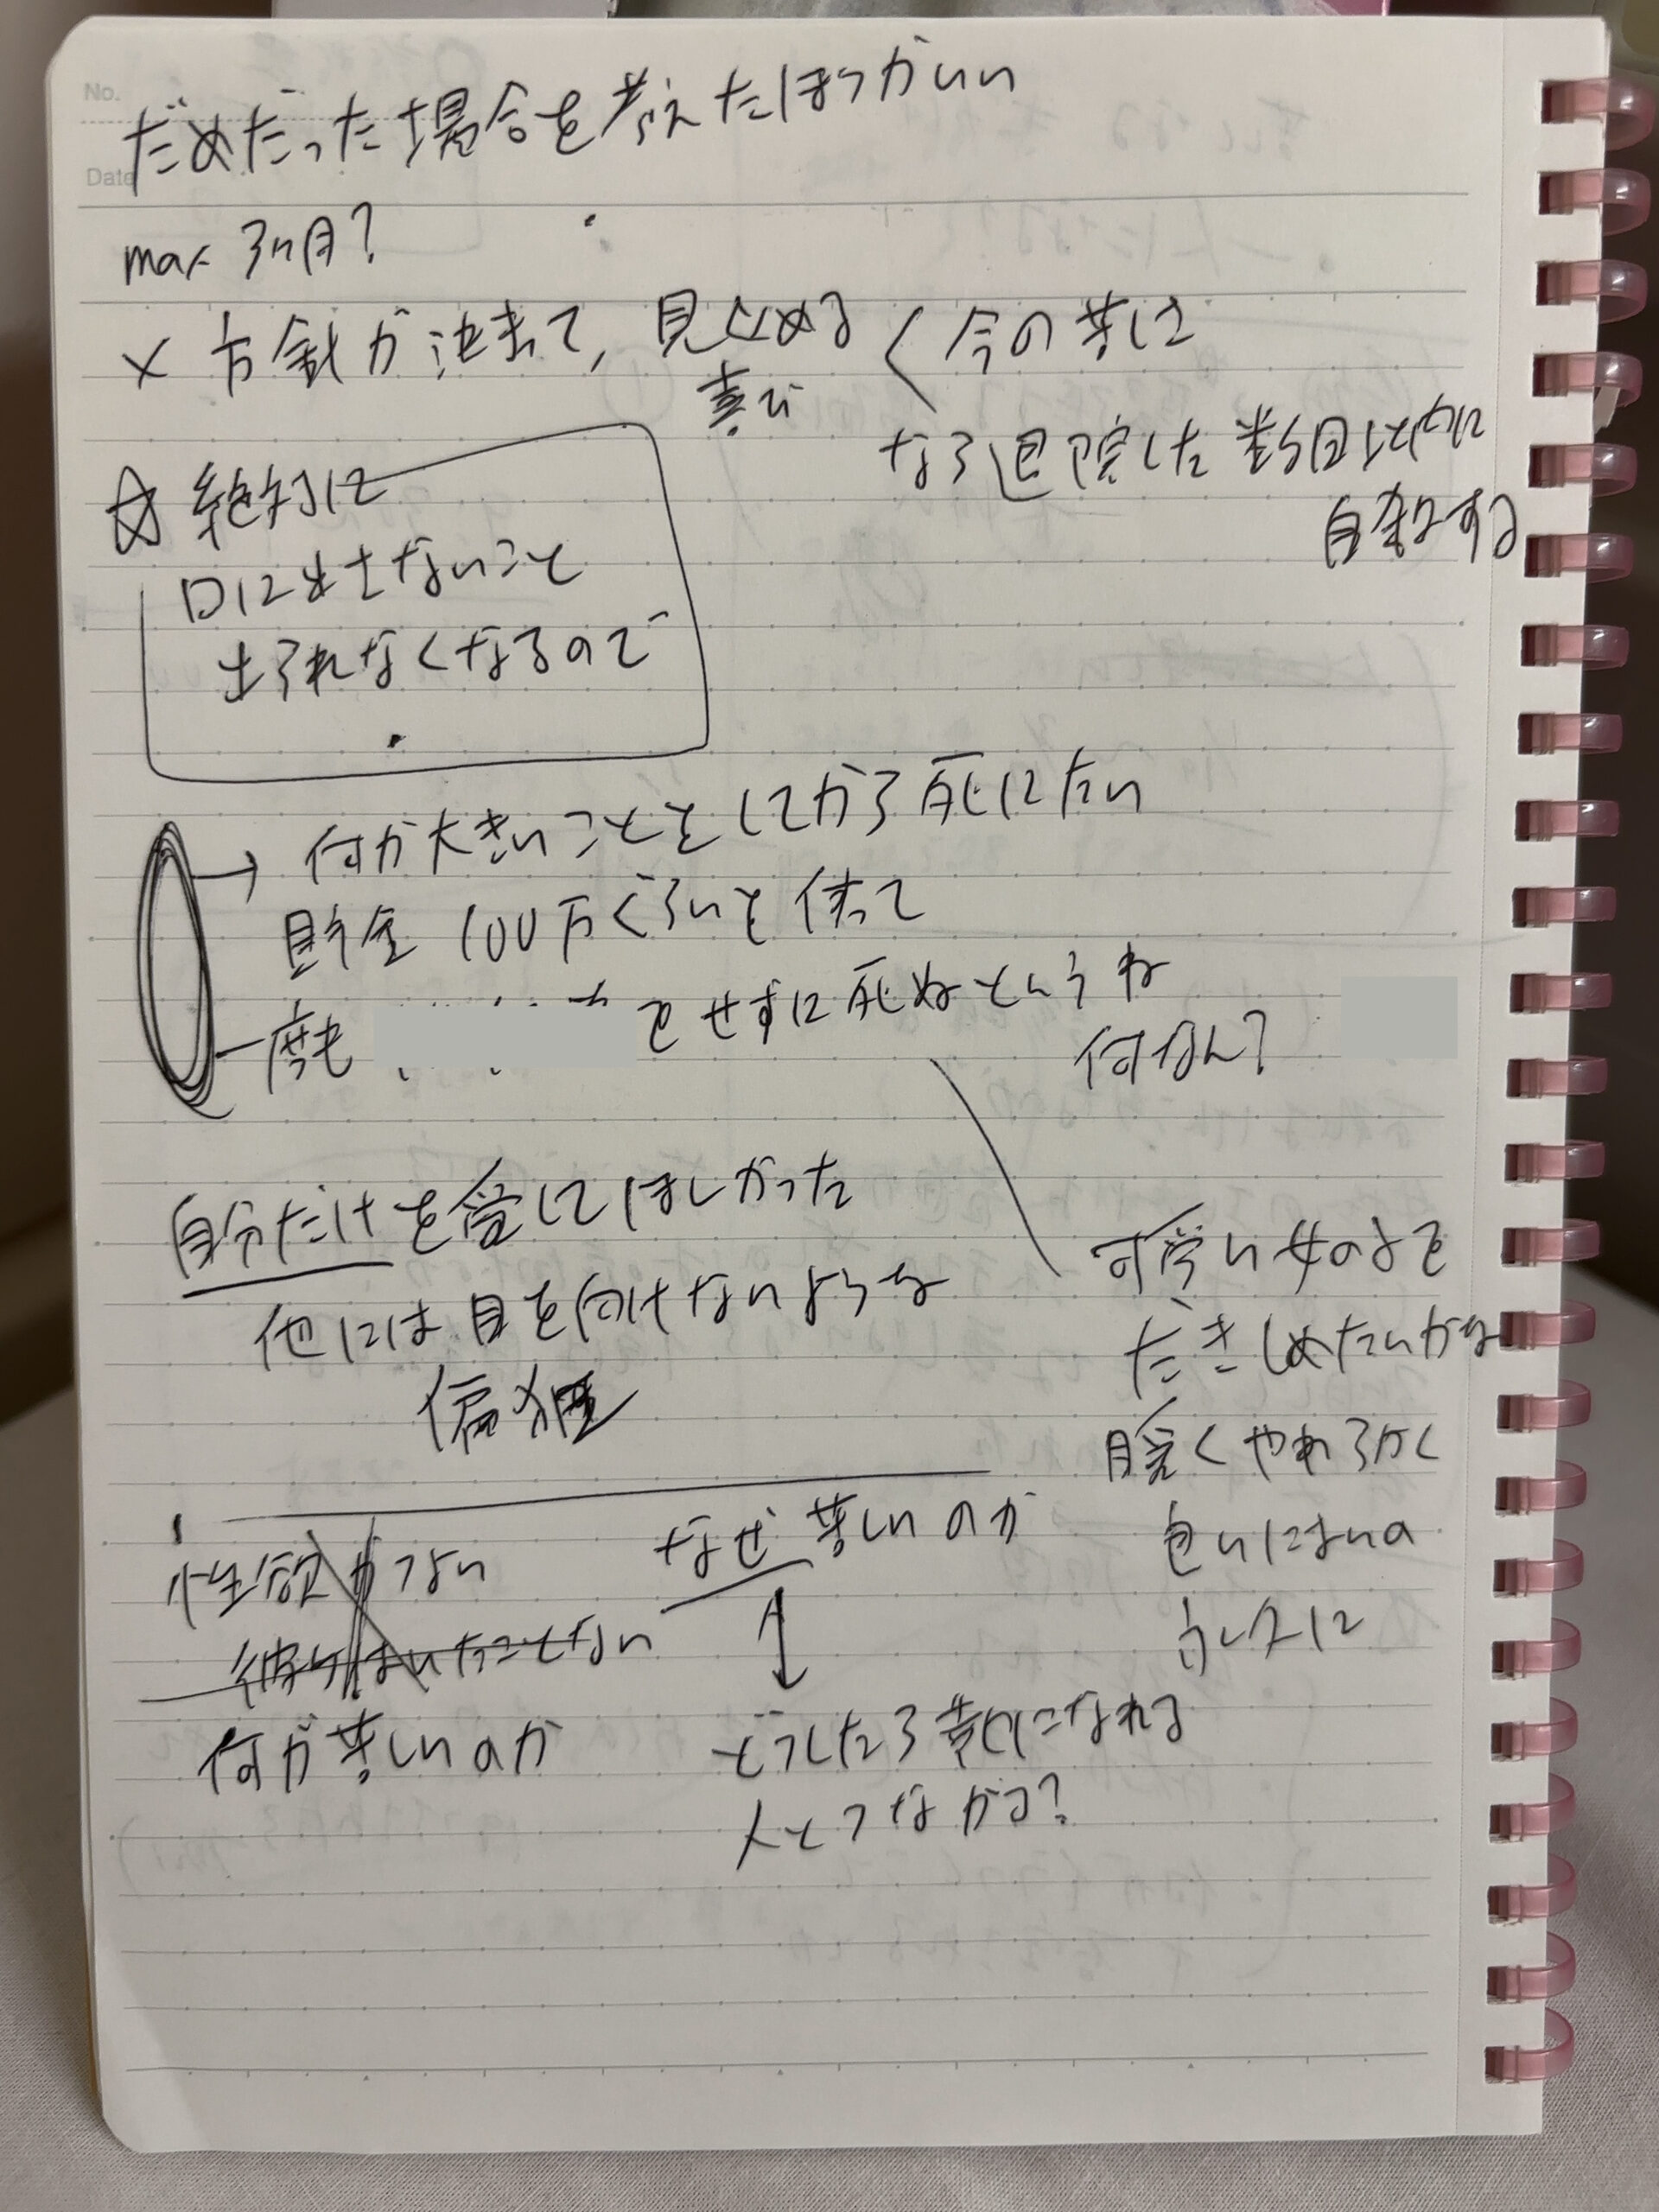 No.
Date
だめだった場合を考えたほうがいい
max 3ヶ月?
× 方針が決まって, 見込める
喜び
< 今の苦しさ
なら退院した数日以内に
自殺する
☆ 絶対に
口に出さないこと
出られなくなるので
→ 何か大きいことをしてから死にたい
貯金 100万ぐらいを使って
一度も
をせずに死ぬというね
何なん?
自分だけを愛してほしかった
他には目を向けないような
偏狂
可愛い女の子を
だきしめたいがな
腕くやわらかく
白い
性欲がつよい
彼氏はいたことない
何が苦しいのか
なぜ苦しいのか
どうしたら楽になれる
人とつながる?